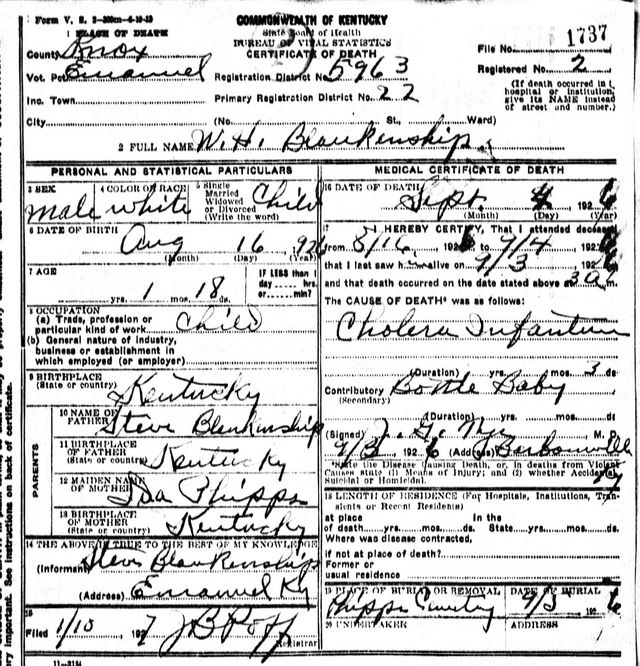 Form V. S. 2-200m-4-10-19
1 PLACE OF DEATH
COMMONWEALTH OF KENTUCKY
State Board of Health
BUREAU OF VITAL STATISTICS
CERTIFICATE OF DEATH
File No. 1737
County Knox
Registered No. 2
Vot. Pct Emanuel
Registration District No 5963
Inc. Town
Primary Registration District No. 22
(If death occurred in a hospital or institution, give its NAME instead of street and number.)
City (No. St., Ward)
2 FULL NAME W. H. Blankenship
PERSONAL AND STATISTICAL PARTICULARS
3 SEX male
4 COLOR OR RACE white
5 Single Married Widowed or Divorced (Write the word) Child
6 DATE OF BIRTH Aug 16 1926
(Month) (Day) (Year)
7 AGE
yrs. 1 mos. 18 ds.
IF LESS than 1 day hrs. or min?
8 OCCUPATION
(a) Trade, profession or particular kind of work Child
(b) General nature of industry, business or establishment in which employed (or employer)
9 BIRTHPLACE
(State or country) Kentucky
PARENTS
10 NAME OF FATHER Steve Blankenship
11 BIRTHPLACE OF FATHER (State or country) Kentucky
12 MAIDEN NAME OF MOTHER Ida Phipps
13 BIRTHPLACE OF MOTHER (State or country) Kentucky
14 THE ABOVE IS TRUE TO THE BEST OF MY KNOWLEDGE
(Informant) Steve Blankenship
(Address) Emanuel Ky
15
Filed 1/10 1927 J B Poff
Registrar
11-3184
MEDICAL CERTIFICATE OF DEATH
16 DATE OF DEATH Sept 4 1926
(Month) (Day) (Year)
17 I HEREBY CERTIFY, That I attended deceased
from 8/16, 1926 to 9/4 1926
that I last saw h alive on 9/3 1926
and that death occurred on the date stated above at 3 a m.
The CAUSE OF DEATH* was as follows:
Cholera Infantum
(Duration) yrs. mos. 3 ds
Contributory Bottle Baby
(Secondary)
(Duration) yrs. mos. ds
(Signed) M. D.
9/3 1926 (Address) Barbourville
Ky
*State the Disease Causing Death, or, in deaths from Violent Causes state (1) Means of Injury; and (2) whether Accidental, Suicidal or Homicidal.
18 LENGTH OF RESIDENCE (For Hospitals, Institutions, Transients or Recent Residents)
at place of death yrs. mos. ds. In the State yrs. mos. ds.
Where was disease contracted,
if not at place of death?
Former or usual residence
19 PLACE OF BURIAL OR REMOVAL Phipps Cemetery
DATE OF BURIAL 9/5 1926
20 UNDERTAKER
ADDRESS
important. See instructions on back of certificate.